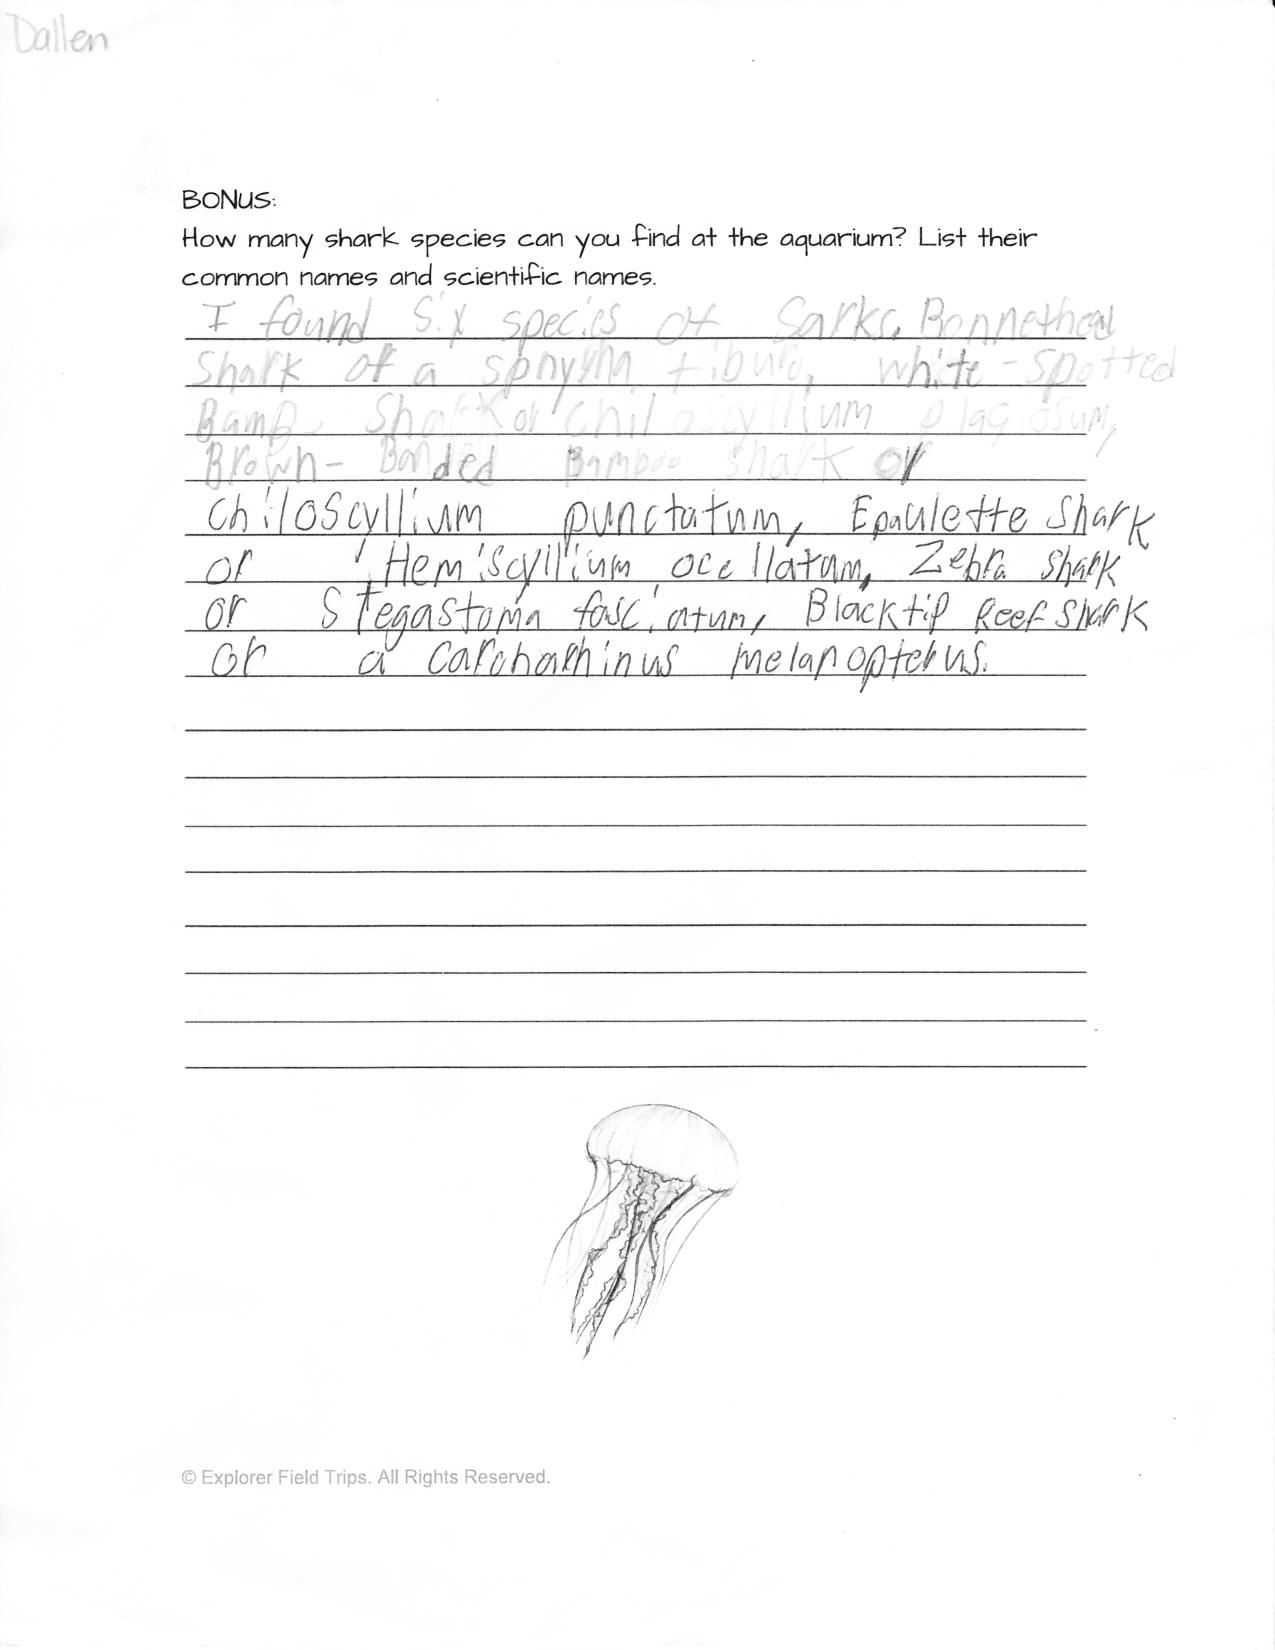 Dallen
BONUS:
How many shark species can you find at the aquarium? List their
common names and scientific names.
I found six species of Sarks. Bonnethead
Shark of a spnyrna tiburo, white-spotted
Bamb Shark or chiloscyllium plagiosum,
Brown-Banded Bamboo shark or
chiloscyllium punctatum, Epaulette Shark
or Hemiscyllium ocellatum, Zebra shark
or Stegastoma fasciatum, Blacktip Reef Shark
or a carcharhinus melanopterus.
© Explorer Field Trips. All Rights Reserved.